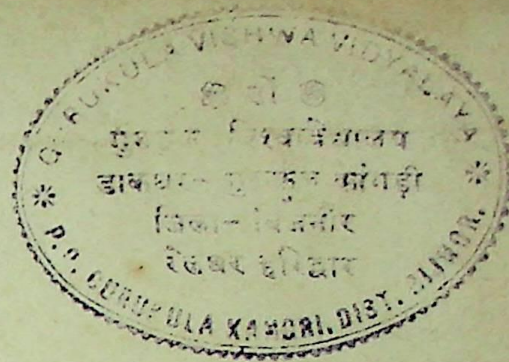 GURUKULA VISHWA VIDYALAYA
ओं
गुरुकुल विश्वविद्यालय
डाकघर- गुरुकुल कांगड़ी
जिला- बिजनौर
रेलघर हरिद्वार
P.O. GURUKULA KANGRI, DIST. BIJNOR.